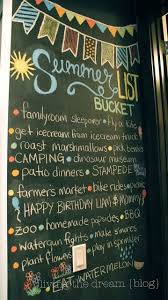 Summer
BUCKET LIST
familyroom sleepover • fly a kite
get icecream from icecream truck
roast marshmallows • pick berries
CAMPING • dinosaur museum
patio dinners • STAMPEDE
farmer's market • bike rides • picnic
HAPPY BIRTHDAY LIAM & MOMMY
zoo • homemade popsicles • BBQ
watergun fights • make s'mores
plant flowers • play in sprinkler
EAT WATERMELON
living the dream [blog]